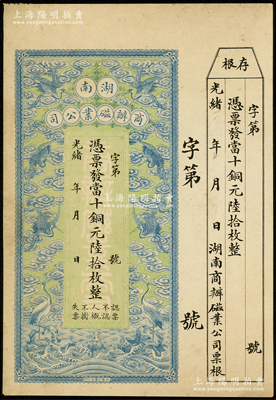 上海阳明拍卖
湖南
商辦磁業公司
字第　號
憑票發當十銅元陸拾枚整
光緒　年　月　日
認票不認人
失票不掛
字第　號
存根
字第　號
憑票發當十銅元陸拾枚整
光緒　年　月　日湖南商辦磁業公司票根